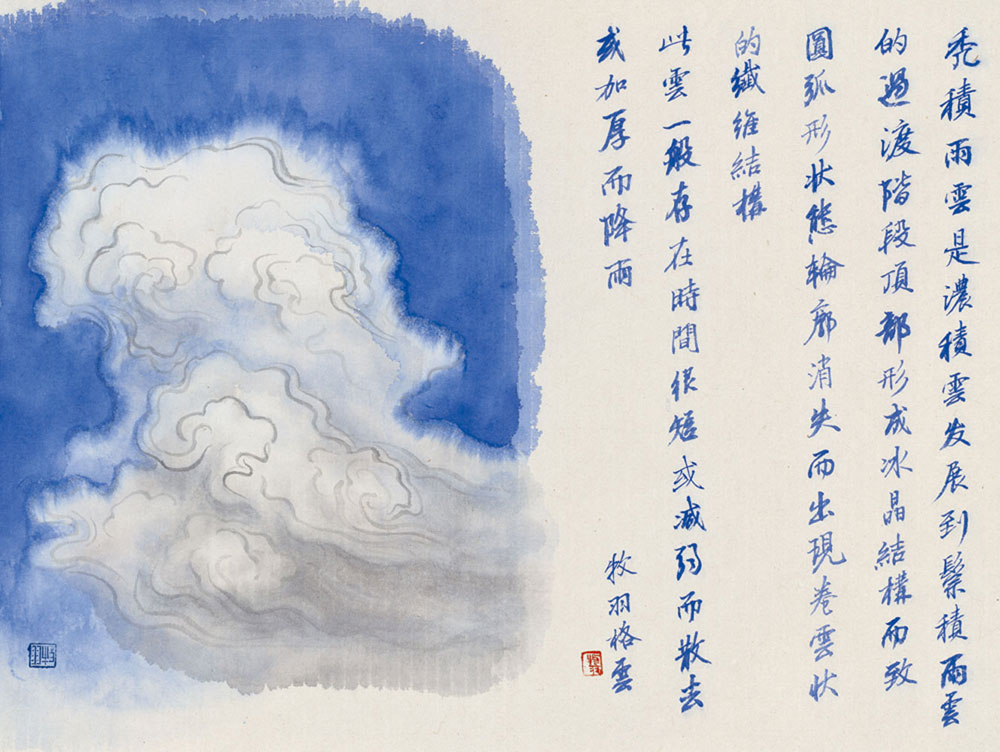 禿積雨雲是濃積雲发展到鬃積雨雲
的過渡階段頂部形成冰晶結構而致
圓弧形状態輪廓消失而出現卷雲状
的纖維結構
此雲一般存在時間很短或减弱而散去
或加厚而降雨
牧羽格雲